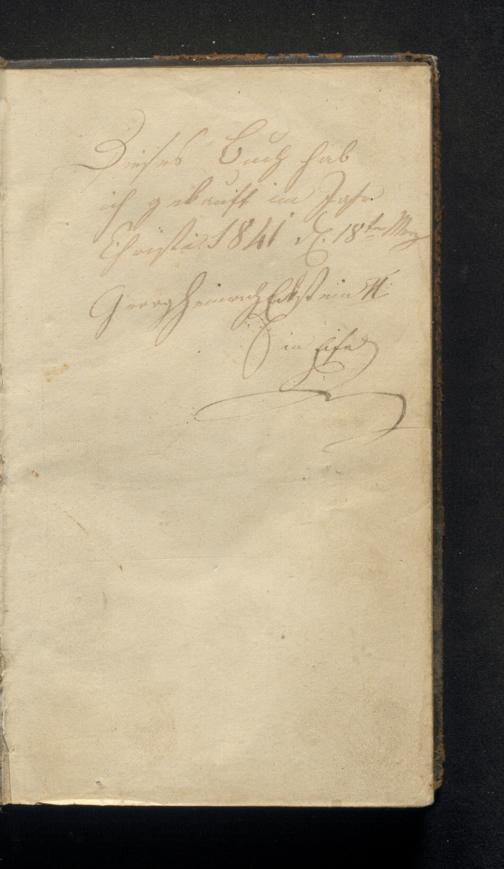 Dieses Buch hab
ich gekauft im Jahr
Christi 1841 d. 18ten
Georg Heinrich Eckstein
in